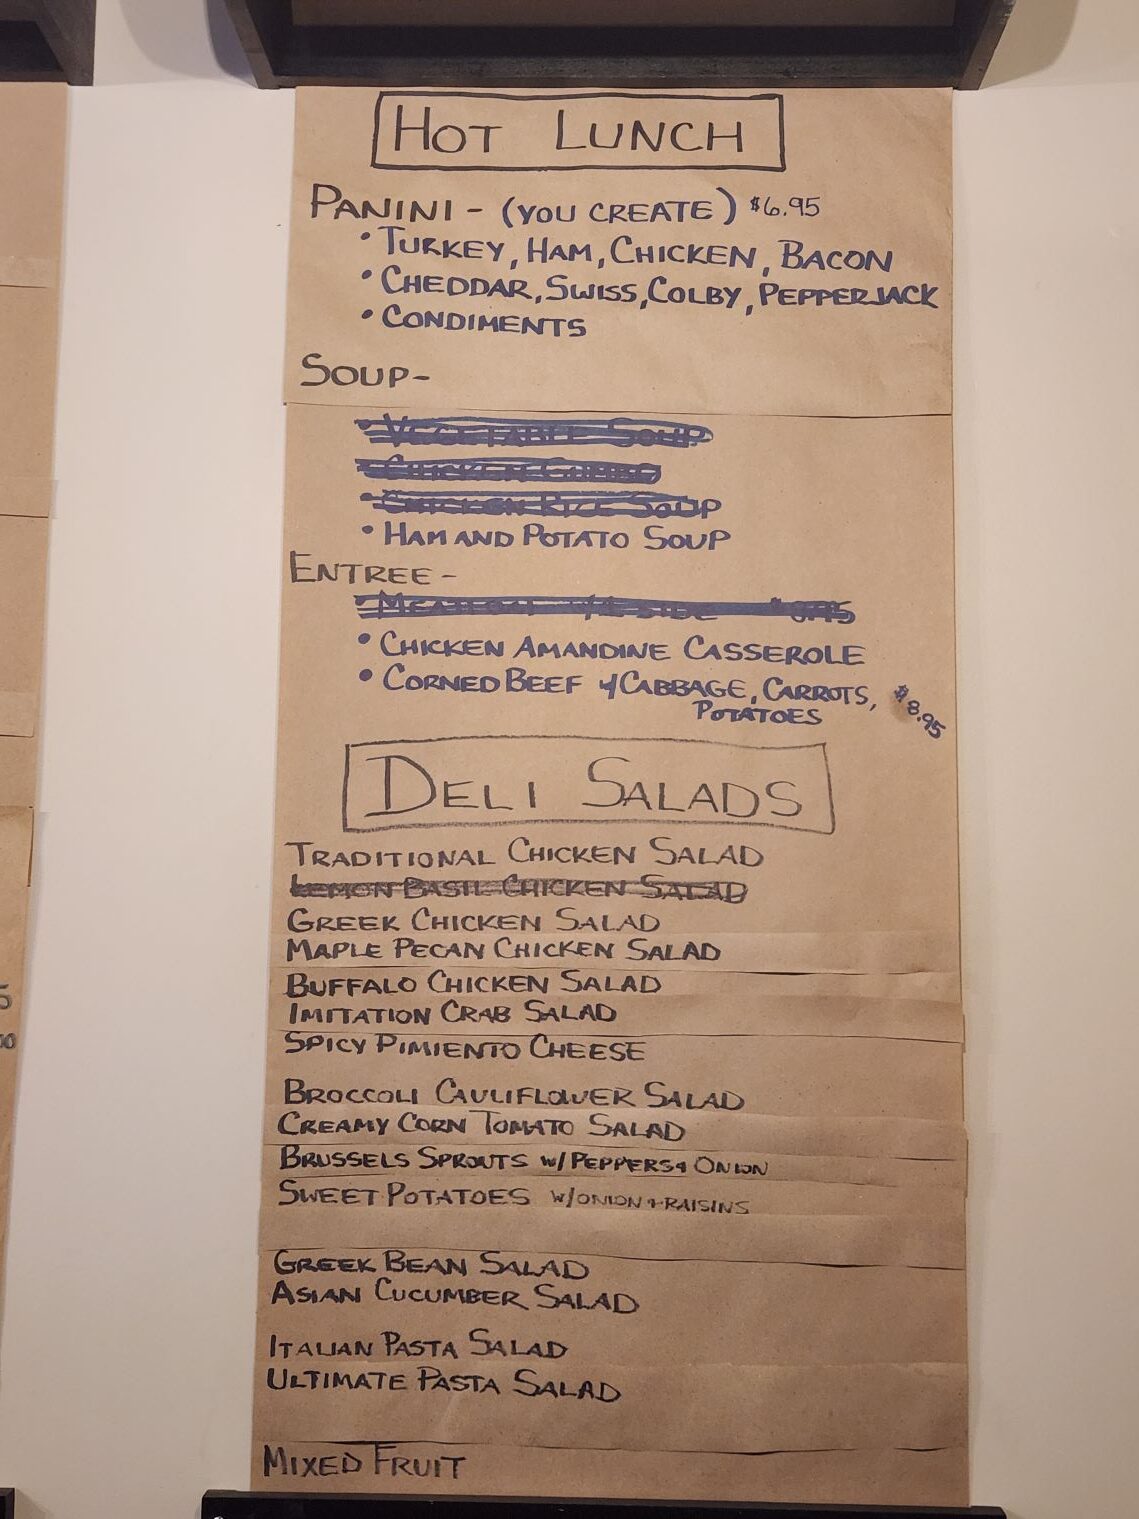 HOT LUNCH
PANINI - (YOU CREATE) $6.95
• TURKEY, HAM, CHICKEN, BACON
• CHEDDAR, SWISS, COLBY, PEPPERJACK
• CONDIMENTS
SOUP-
• VEGETABLE SOUP
• CHICKEN GUMBO
• CHICKEN RICE SOUP
• HAM AND POTATO SOUP
ENTREE -
• MEATLOAF W/1 SIDE
• CHICKEN AMANDINE CASSEROLE
• CORNED BEEF w/ CABBAGE, CARROTS, $8.95
POTATOES
DELI SALADS
TRADITIONAL CHICKEN SALAD
LEMON BASIL CHICKEN SALAD
GREEK CHICKEN SALAD
MAPLE PECAN CHICKEN SALAD
BUFFALO CHICKEN SALAD
IMITATION CRAB SALAD
SPICY PIMIENTO CHEESE
BROCCOLI CAULIFLOWER SALAD
CREAMY CORN TOMATO SALAD
BRUSSELS SPROUTS W/ PEPPERS & ONION
SWEET POTATOES W/ONION + RAISINS
GREEK BEAN SALAD
ASIAN CUCUMBER SALAD
ITALIAN PASTA SALAD
ULTIMATE PASTA SALAD
MIXED FRUIT